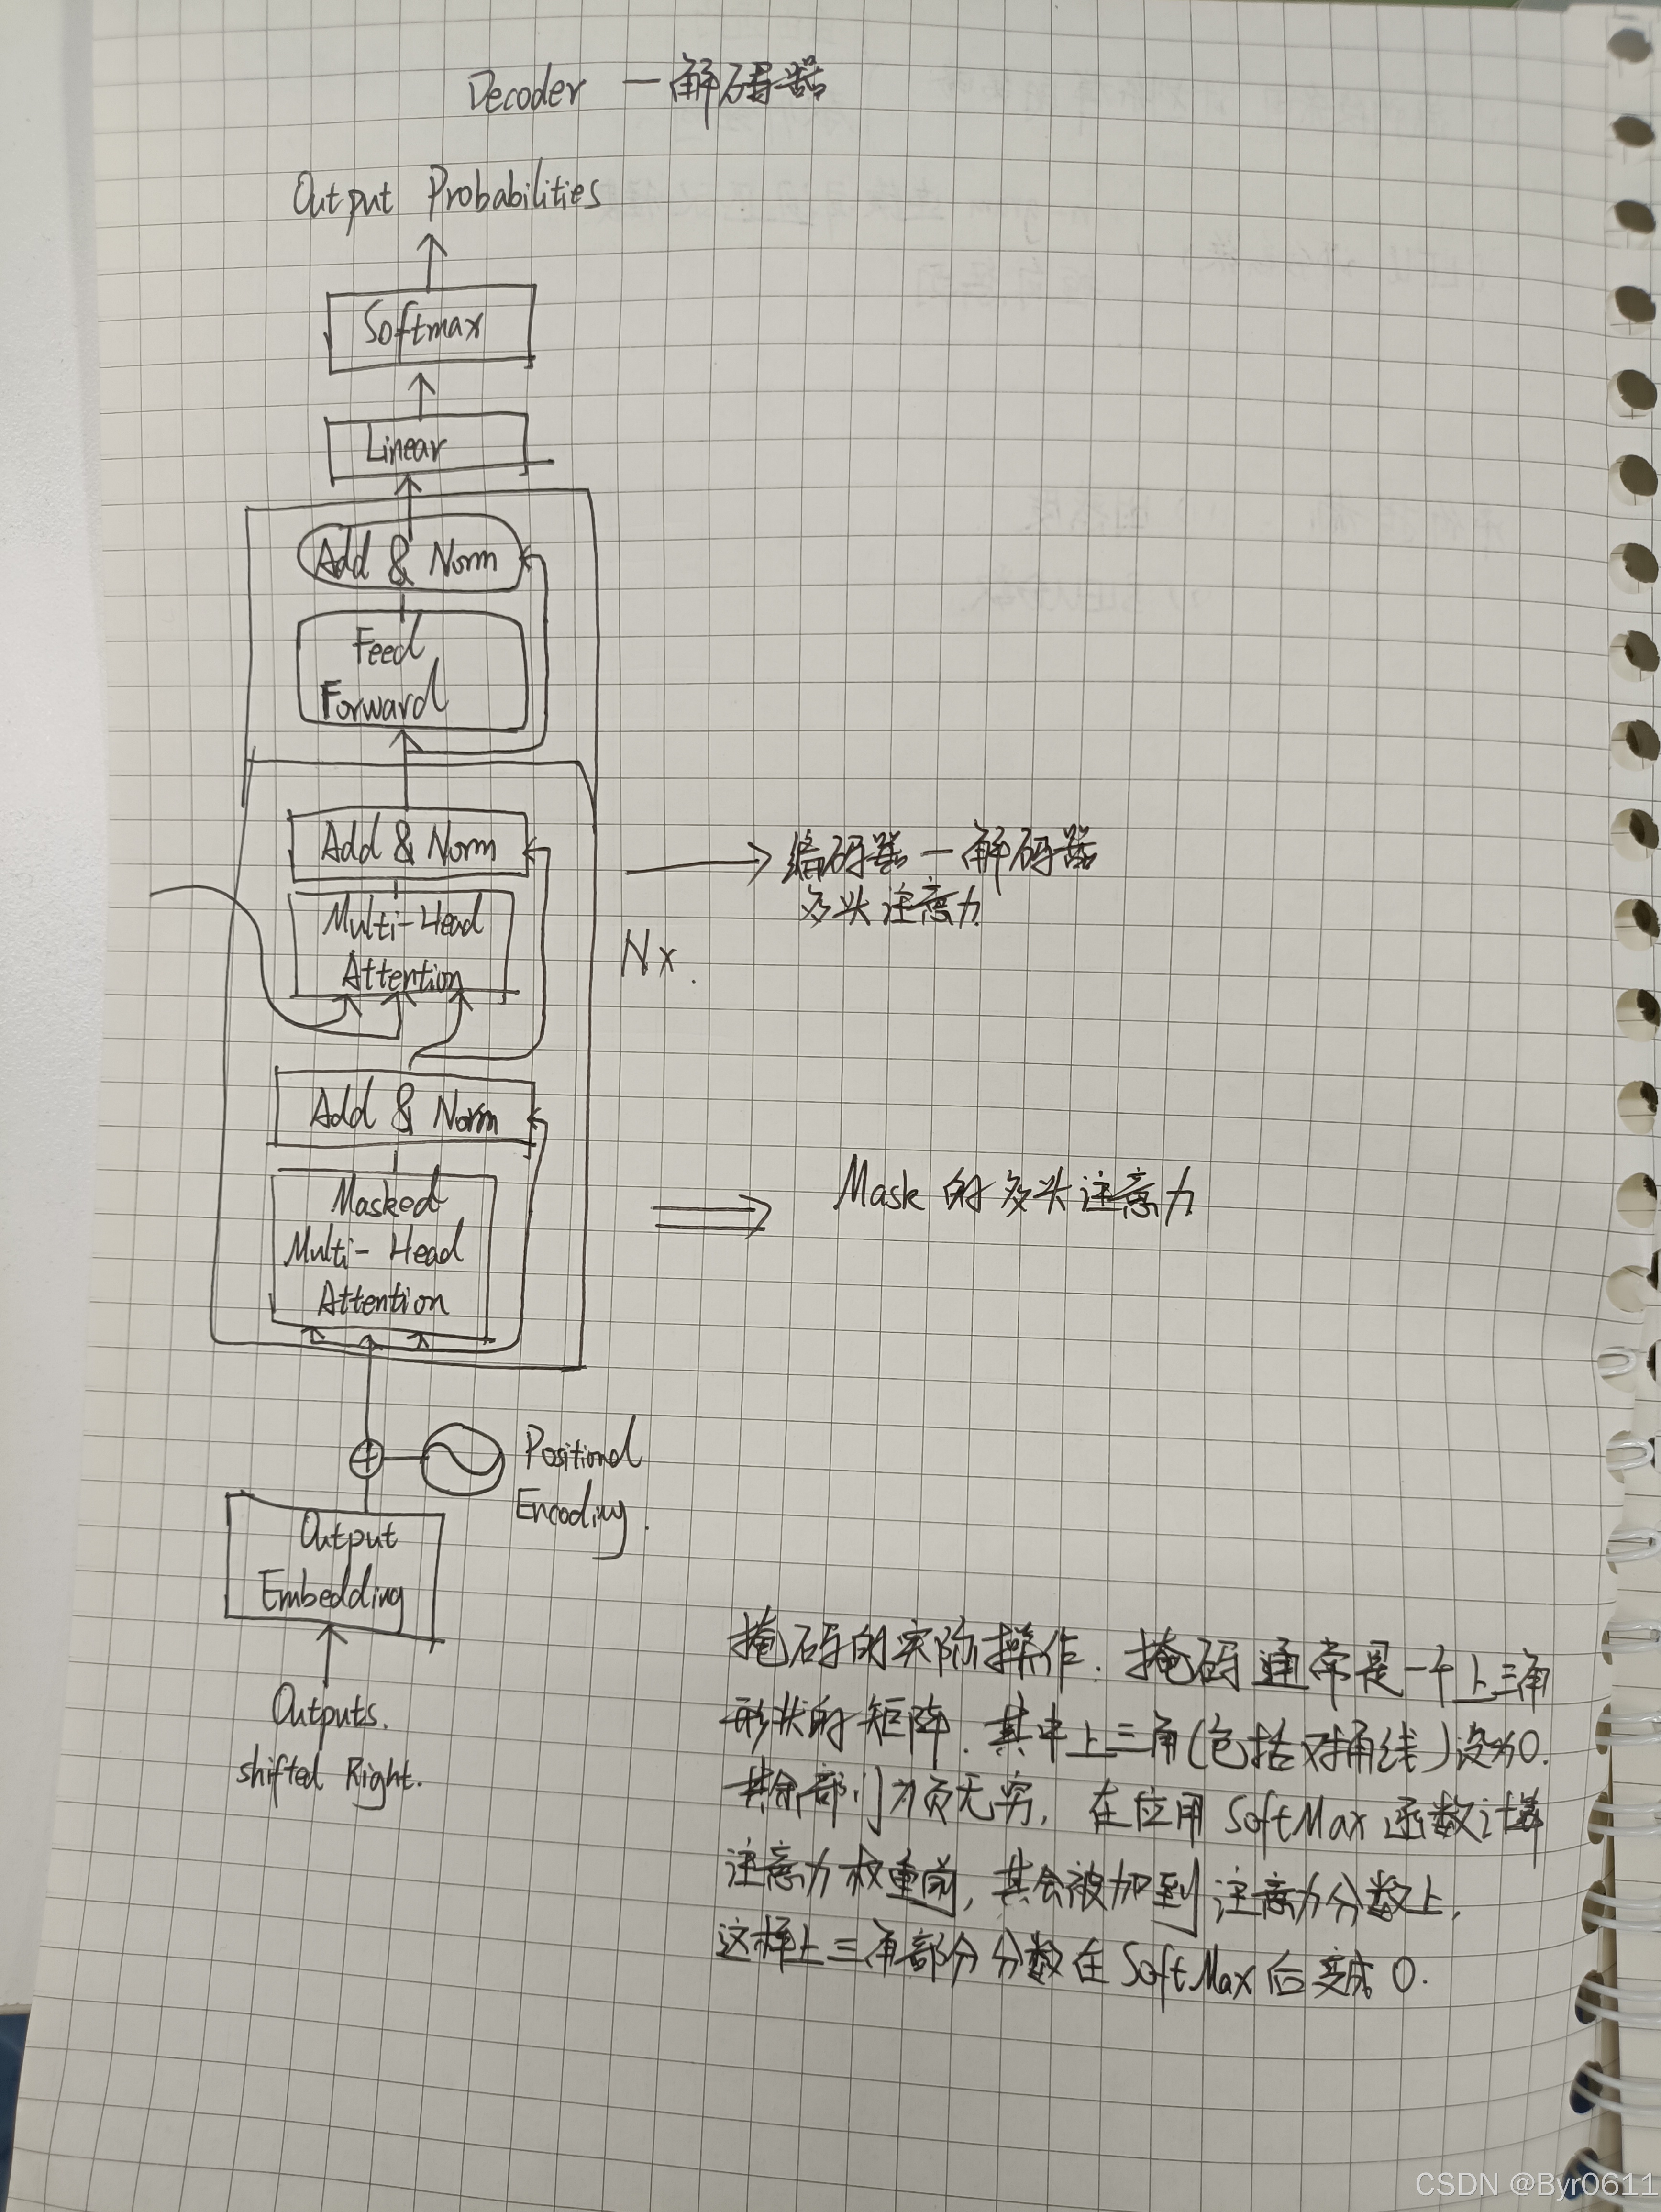 Decoder — 解码器
Output Probabilities
Softmax
Linear
Add & Norm
Feed
Forward
Add & Norm
Multi-Head
Attention
编码器 — 解码器
多头注意力
Nx.
Add & Norm
Masked
Multi-Head
Attention
Mask 的多头注意力
Positional
Encoding.
Output
Embedding
Outputs.
shifted Right.
掩码的实际操作. 掩码通常是一个上三角
形状的矩阵. 其中上三角(包括对角线)设为0.
其余部分为负无穷, 在应用 SoftMax 函数计算
注意力权重前, 其会被加到注意力分数上,
这样上三角部分分数在 SoftMax 后变成 0.
CSDN @Byr0611